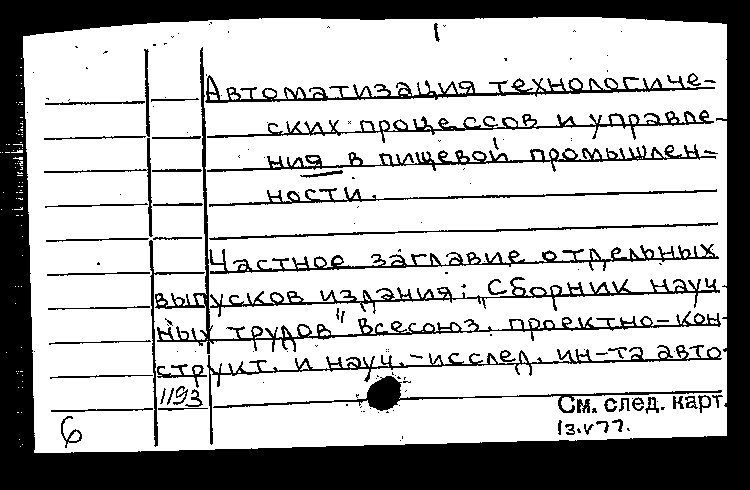 Автоматизация технологиче-
ских процессов и управле-
ния в пищевой промышлен-
ности.
Частное заглавие отдельных
выпусков издания: „Сборник науч-
ных трудов" Всесоюз. проектно-кон-
структ. и науч.-исслед. ин-та авто-
1193
См. след. карт.
13.V77.
6